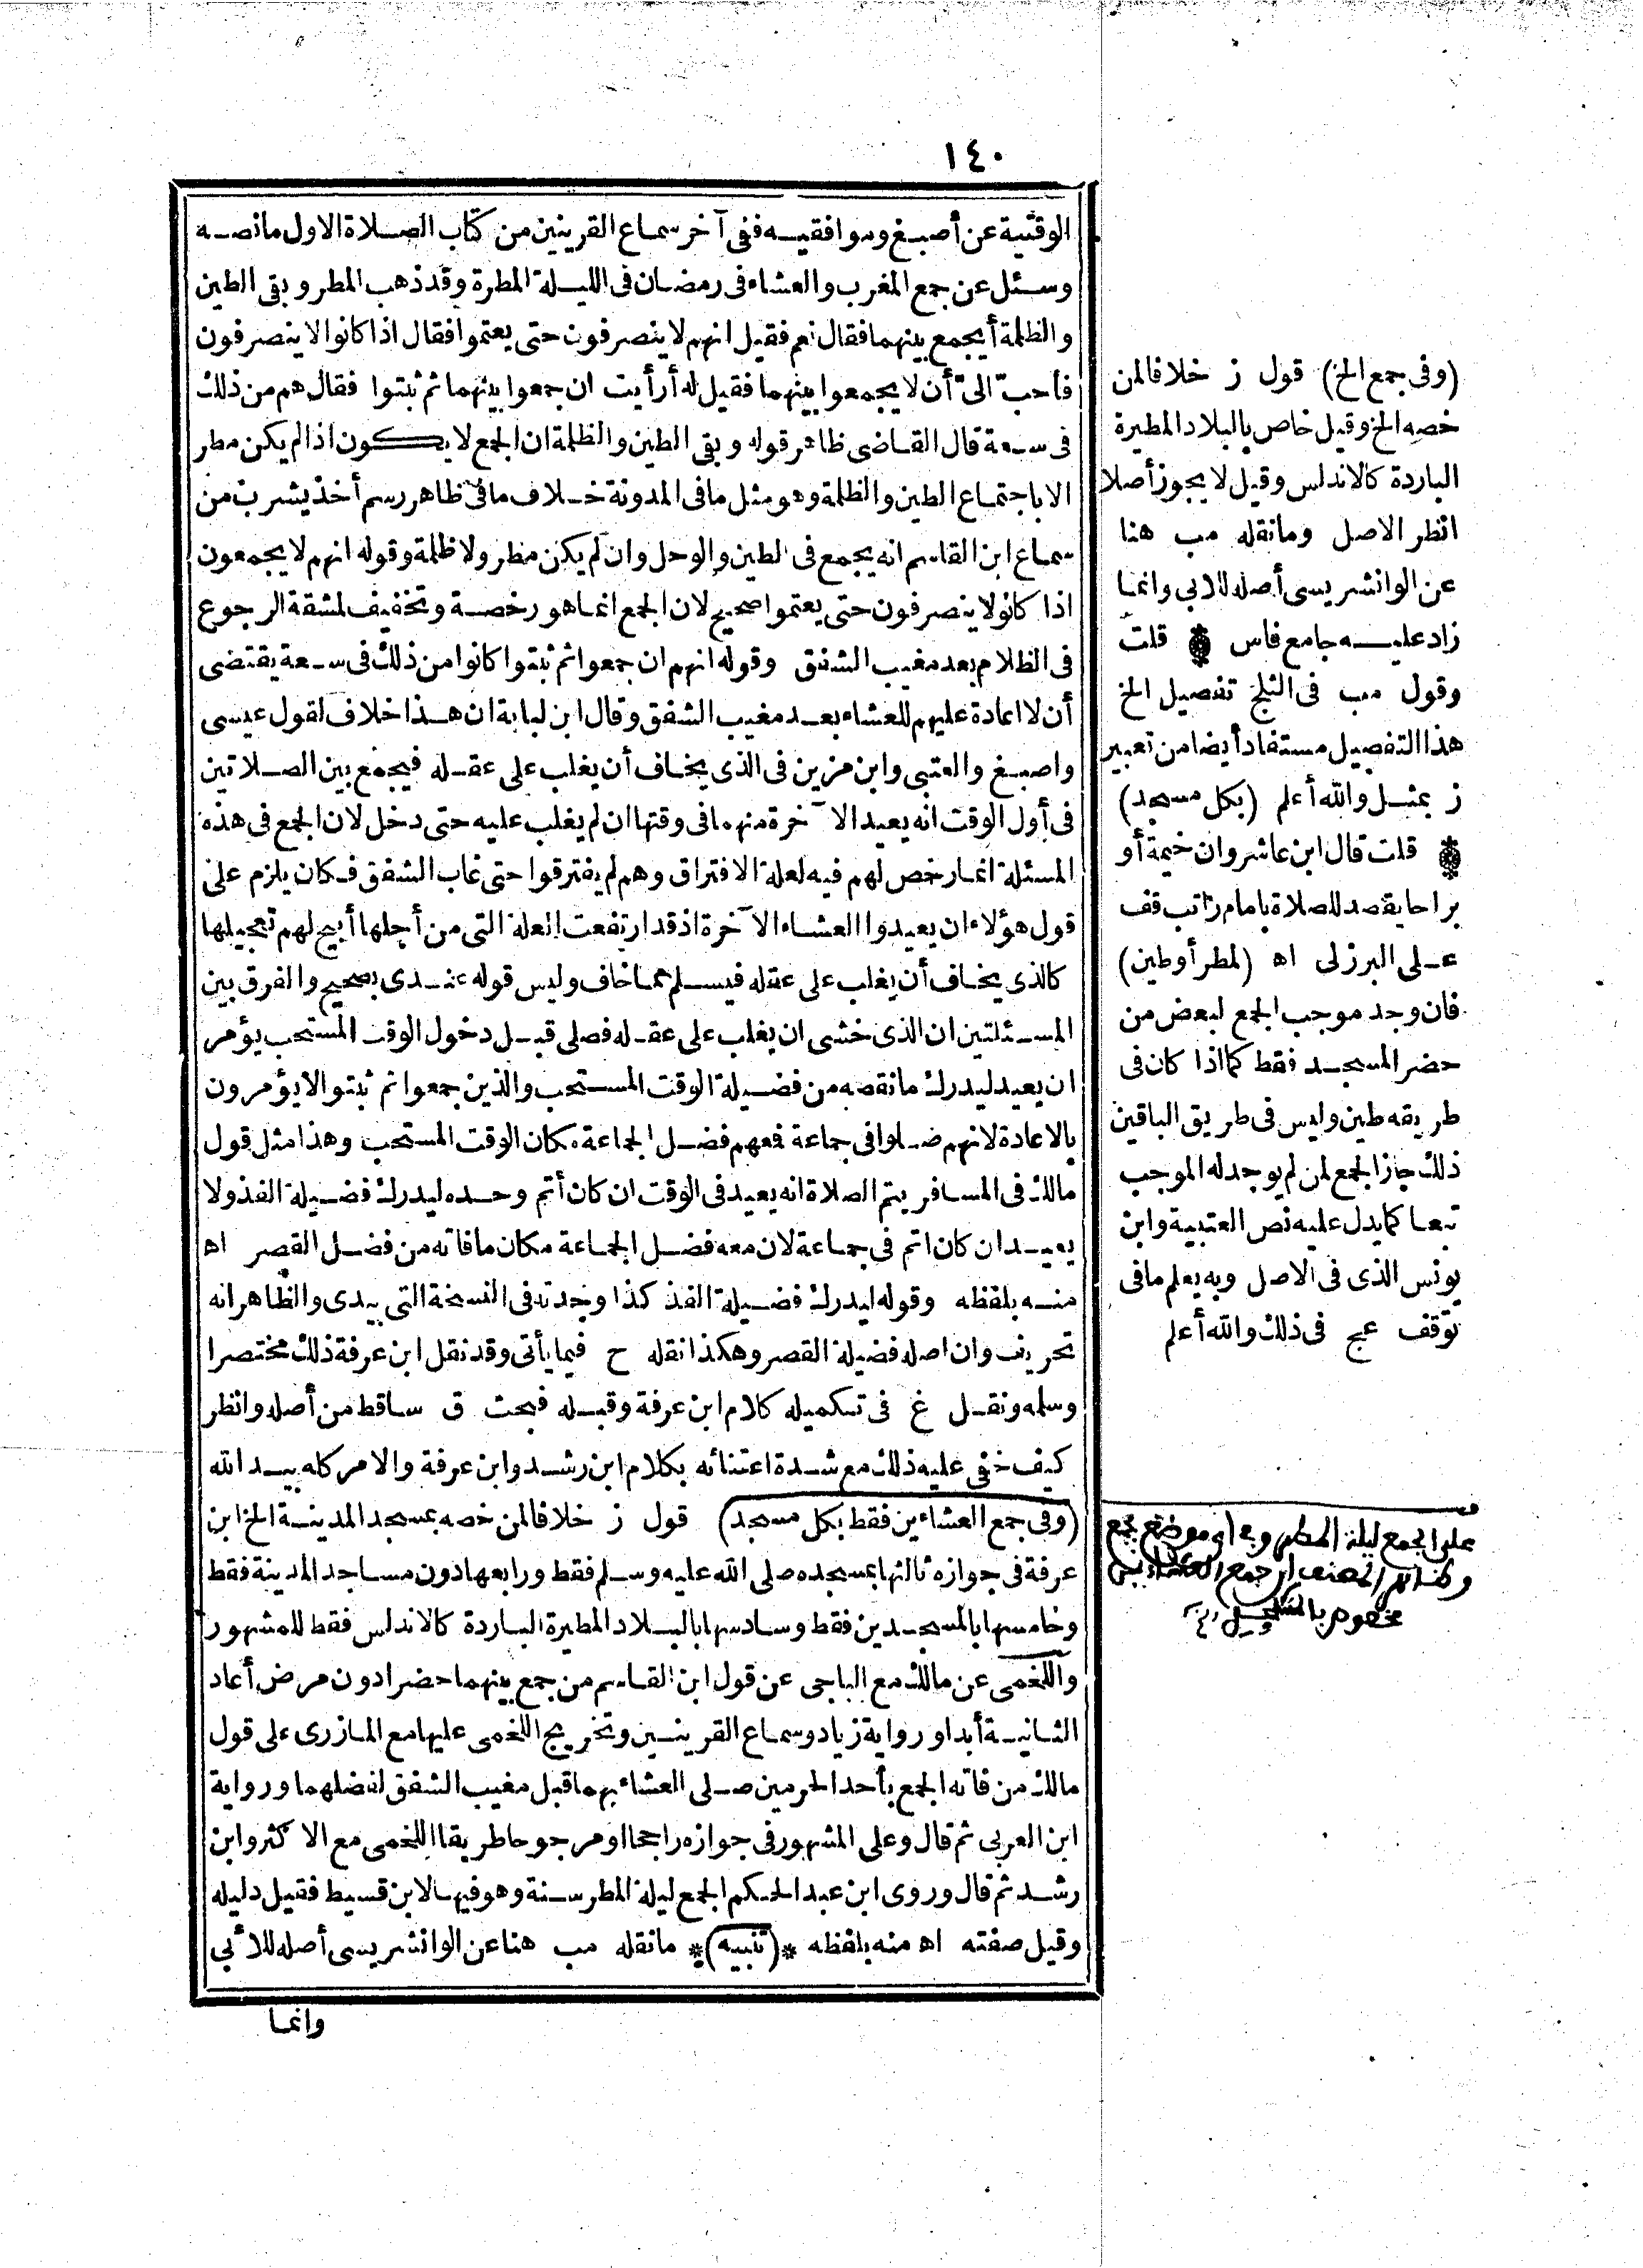 ١٤٠
الوقتية عن أصبغ وموافقيه ففى آخر سماع القرينين من كتاب الصلاة الاول مانصه
وسئل عن جمع المغرب والعشاء فى رمضان فى الليلة المطرة وقد ذهب المطر وبقى الطين
والظلمة أيجمع بينهما فقال نعم فقيل انهم لا ينصرفون حتى يعتموا فقال اذا كانوا لا ينصرفون
فأحبّ الىّ أن لا يجمعوا بينهما فقيل له أرأيت ان جمعوا بينهما ثم ثبتوا فقال هم من ذلك
فى سعة قال القاضى ظاهر قوله وبقى الطين والظلمة ان الجمع لا يكون اذا لم يكن مطر
الا باجتماع الطين والظلمة وهو مثل مافى المدونة خلاف مافى ظاهر رسم أخذ يشرب من
سماع ابن القاسم انه يجمع فى الطين والوحل وان لم يكن مطر ولا ظلمة وقوله انهم لا يجمعون
اذا كانوا لا ينصرفون حتى يعتموا صحيح لان الجمع انما هو رخصة وتخفيف لمشقة الرجوع
فى الظلام بعد مغيب الشفق وقوله انهم ان جمعوا ثم ثبتوا كانوا من ذلك فى سعة يقتضى
أن لا اعادة عليهم للعشاء بعد مغيب الشفق وقال ابن لبابة ان هذا خلاف لقول عيسى
واصبغ والعتبى وابن مزين فى الذى يخاف أن يغلب على عقله فيجمع بين الصلاتين
فى أول الوقت انه يعيد الآخرة منهما فى وقتها ان لم يغلب عليه حتى دخل لان الجمع فى هذه
المسئلة انما رخص لهم فيه لعلة الافتراق وهم لم يفترقوا حتى غاب الشفق فكان يلزم على
قول هؤلاء ان يعيدوا العشاء الآخرة اذ قد ارتفعت العلة التى من أجلها أبيح لهم تعجيلها
كالذى يخاف أن يغلب على عقله فيسلم مما خاف وليس قوله عندى بصحيح والفرق بين
المسئلتين ان الذى خشى ان يغلب على عقله فصلى قبل دخول الوقت المستحب يؤمر
ان يعيد ليدرك ما نقصه من فضيلة الوقت المستحب والذين جمعوا ثم ثبتوا لا يؤمرون
بالاعادة لانهم صلوا فى جماعة فمعهم فضل الجماعة مكان الوقت المستحب وهذا مثل قول
مالك فى المسافر يتم الصلاة انه يعيد فى الوقت ان كان أتم وحده ليدرك فضيلة الفذ ولا
يعيد ان كان اتم فى جماعة لان معه فضل الجماعة مكان ما فاته من فضل القصر اه
منه بلفظه وقوله ليدرك فضيلة الفذ كذا وجدته فى النسخة التى بيدى والظاهر انه
تحريف وان اصله فضيلة القصر وهكذا نقله ح فيما يأتى وقد نقل ابن عرفة ذلك مختصرا
وسلمه ونقل غ فى تكميله كلام ابن عرفة وقبله فبحث ق ساقط من أصله وانظر
كيف خفى عليه ذلك مع شدة اعتنائه بكلام ابن رشد وابن عرفة والامر كله بيد الله
(وفى جمع العشاءين فقط بكل مسجد) قول ز خلافا لمن خصه بمسجد المدينة الخ ابن
عرفة فى جوازه ثالثها بمسجده صلى الله عليه وسلم فقط ورابعها دون مساجد المدينة فقط
وخامسها بالمسجدين فقط وسادسها بالبلاد المطيرة الباردة كالاندلس فقط للمشهور
واللخمى عن مالك مع الباجى عن قول ابن القاسم من جمع بينهما حضرا دون مرض أعاد
الثانية أبدا ورواية زياد وسماع القرينين وتخريج اللخمى عليها مع المازرى على قول
مالك من فاته الجمع بأحد الحرمين صلى العشاء بهما قبل مغيب الشفق لفضلهما ورواية
ابن العربى ثم قال وعلى المشهور فى جوازه راجحا او مرجوحا طريقا اللخمى مع الاكثر وابن
رشد ثم قال وروى ابن عبد الحكم الجمع ليلة المطر سنة وهو فيها لابن قسيط فقيل دليله
وقيل صفته اه منه بلفظه *(تنبيه)* مانقله مب هنا عن الوانشريسى أصله للأبى
وانما
(وفى جمع الخ) قول ز خلافا لمن
خصه الخ وقيل خاص بالبلاد المطيرة
الباردة كالاندلس وقيل لا يجوز أصلا
انظر الاصل ومانقله مب هنا
عن الوانشريسى أصله للابى وانما
زاد عليه جامع فاس * قلت
وقول مب فى الثلج تفصيل الخ
هذا التفصيل مستفاد أيضا من تعبير
ز بمثل والله أعلم (بكل مسجد)
* قلت قال ابن عاشر وان خيمة أو
براحا يقصد للصلاة بامام راتب قف
على البرزلى اه (لمطر أو طين)
فان وجد موجب الجمع لبعض من
حضر المسجد فقط كما اذا كان فى
طريقه طين وليس فى طريق الباقين
ذلك جاز الجمع لمن لم يوجد له الموجب
تبعا كما يدل عليه نص العتبية وابن
يونس الذى فى الاصل وبه يعلم مافى
توقف عج فى ذلك والله أعلم
على الجمع ليلة المطر